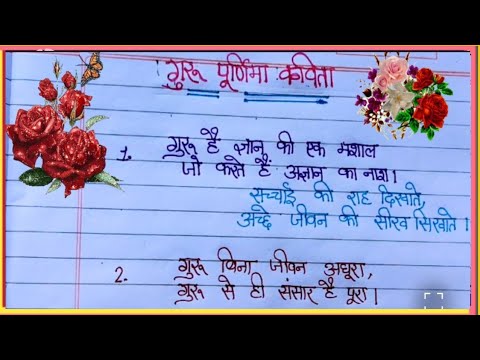 गुरू पूर्णिमा कविता
1. गुरू है ज्ञान की एक मशाल
जो करते हैं अज्ञान का नाश।
सच्चाई की राह दिखाते,
अच्छे जीवन की सीख सिखाते।
2. गुरू बिना जीवन अधूरा,
गुरू से ही संसार है पूरा।